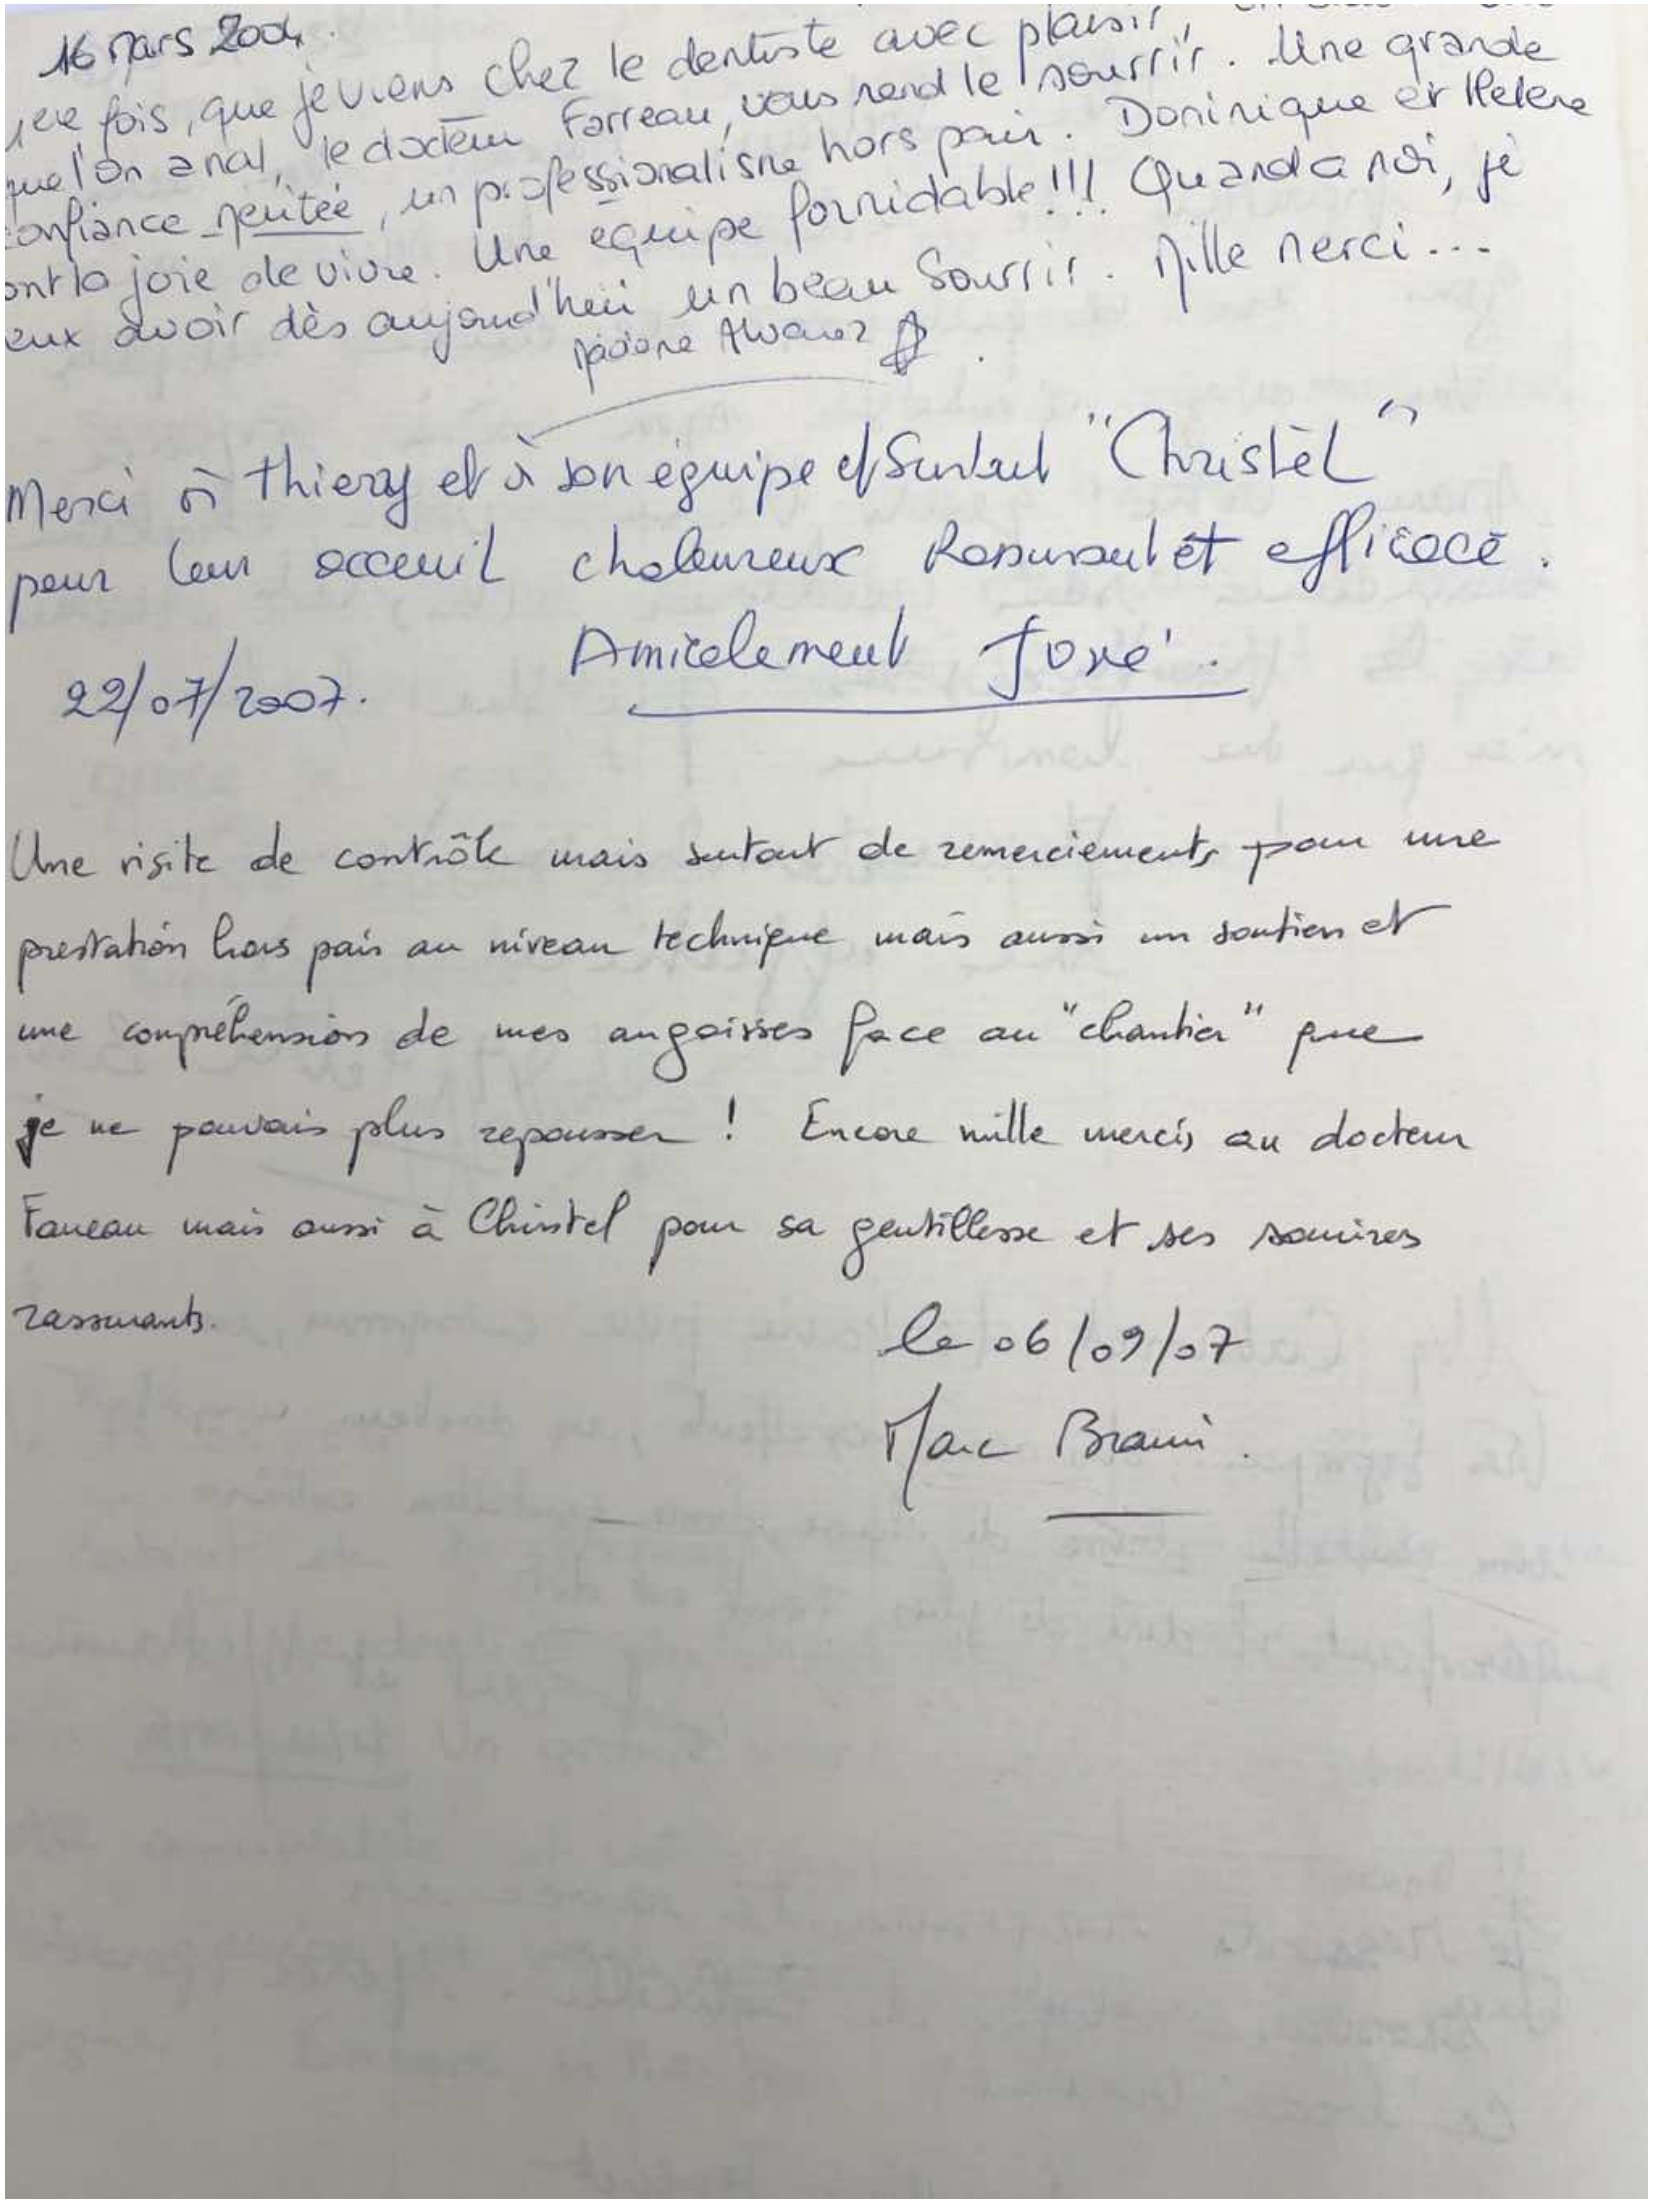 16 Mars 2004.
1ere fois, que je viens chez le dentiste avec plaisir,
que l'on a mal, le docteur Farreau, vous rend le sourrir. Une grande
confiance méritée, un professionalisme hors pair. Dominique et Helene
ont la joie de vivre. Une équipe formidable!!! Quand a moi, je
eux avoir dès aujourd'hui un beau Sourrir. Mille merci...
Madame Alvarez
Merci à thierry et à son équipe et Surtout "Christèl"
pour leur acceuil chaleureux Rassurant et efficace.
Amicalement José.
22/07/2007.
Une visite de contrôle mais surtout de remerciements pour une
prestation hors pair au niveau technique mais aussi un soutien et
une compréhension de mes angoisses face au "chantier" que
je ne pouvais plus repousser ! Encore mille mercis au docteur
Farreau mais aussi à Christel pour sa gentillesse et ses sourires
rassurants.
le 06/09/07
Marc